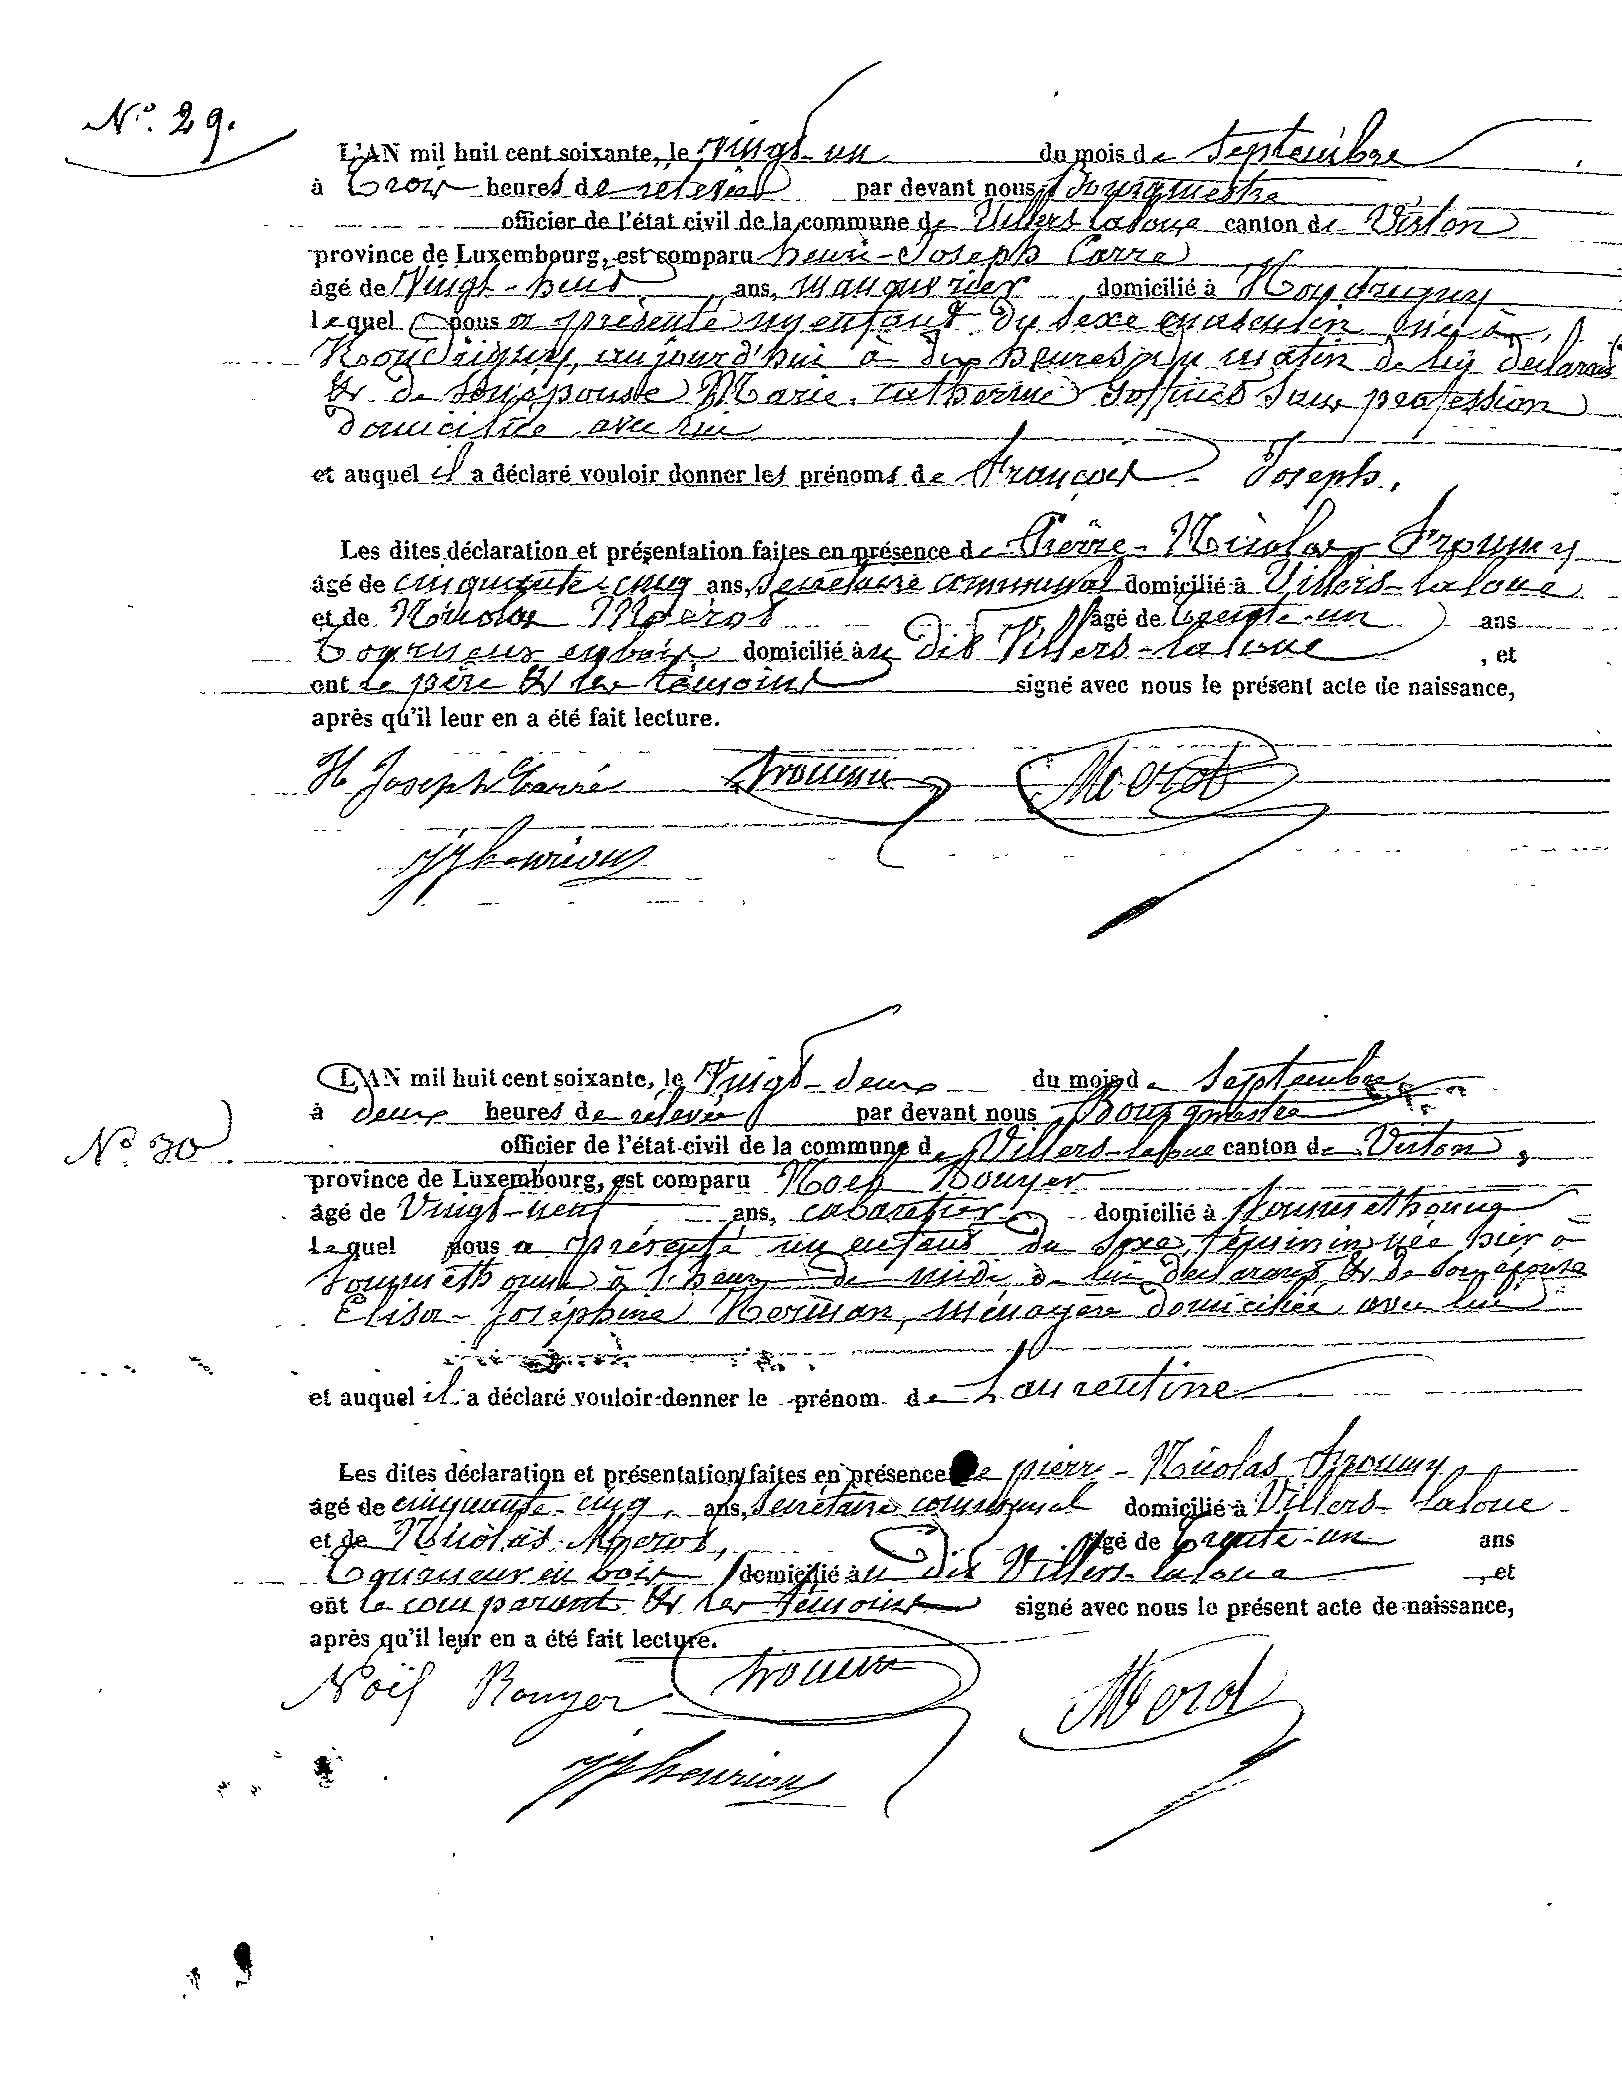 N° 29.
L'AN mil huit cent soixante, le vingt-un du mois de Septembre
à trois heures de relevée par devant nous Bourgmestre
officier de l'état civil de la commune de Villers-laloue canton de Virton
province de Luxembourg, est comparu henri-Joseph Carré
âgé de Vingt-huit ans, manouvrier domicilié à Houdrigny
lequel nous a présenté un enfant du sexe masculin né à
Houdrigny, aujourd'hui à dix heures du matin de lui déclarant
& de son épouse Marie-Catherine Goffinet sans profession
domiciliée avec lui
et auquel il a déclaré vouloir donner les prénoms de François-Joseph.
Les dites déclaration et présentation faites en présence de Pierre-Nicolas
âgé de cinquante-cinq ans, secrétaire communal domicilié à Villers-laloue
et de Nicolas Merot âgé de trente-un ans
Tourneur en bois domicilié au dit Villers-laloue, et
ont le père & les témoins signé avec nous le présent acte de naissance,
après qu'il leur en a été fait lecture.
H Joseph Carré Merot
N° 30
L'AN mil huit cent soixante, le Vingt-deux du mois de Septembre
à deux heures de relevée par devant nous Bourgmestre
officier de l'état civil de la commune de Villers-laloue canton de Virton,
province de Luxembourg, est comparu Noël Rouyer
âgé de Vingt-neuf ans, cabaretier domicilié à Sommethonne
lequel nous a présenté un enfant du sexe féminin née hier à
Sommethonne à de midi de lui déclarant & de son épouse
Elisa-Joséphine Herman, ménagère domiciliée avec lui
et auquel il a déclaré vouloir donner le prénom de Laurentine
Les dites déclaration et présentation faites en présence de pierre-Nicolas
âgé de cinquante-cinq ans, secrétaire communal domicilié à Villers-laloue
et de Nicolas Merot, âgé de trente-un ans
Tourneur en bois domicilié au dit Villers-laloue, et
ont le comparant & les témoins signé avec nous le présent acte de naissance,
après qu'il leur en a été fait lecture.
Noël Rouyer Merot